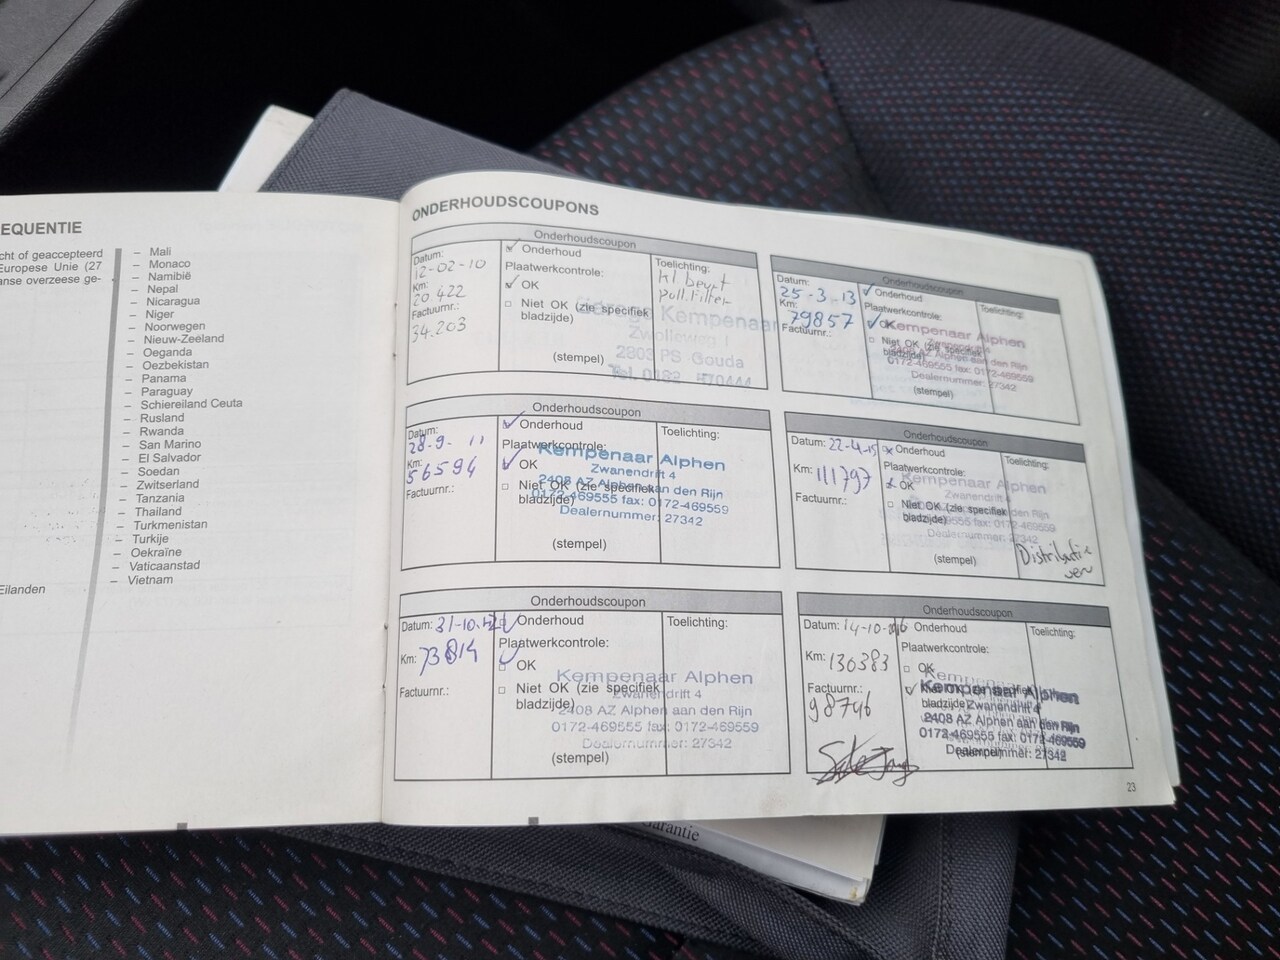 EQUENTIE
cht of geaccepteerd
Europese Unie (27
anse overzeese ge-
Eilanden
– Mali
– Monaco
– Namibië
– Nepal
– Nicaragua
– Niger
– Noorwegen
– Nieuw-Zeeland
– Oeganda
– Oezbekistan
– Panama
– Paraguay
– Schiereiland Ceuta
– Rusland
– Rwanda
– San Marino
– El Salvador
– Soedan
– Zwitserland
– Tanzania
– Thailand
– Turkmenistan
– Turkije
– Oekraïne
– Vaticaanstad
– Vietnam
ONDERHOUDSCOUPONS
Onderhoudscoupon
Datum:
12-02-10
Km:
20.422
Factuurnr.:
34.203
Onderhoud
Plaatwerkcontrole:
OK
Niet OK (zie specifiek
bladzijde)
(stempel)
Toelichting:
kl. beurt
poll. Filter
Garage Kempenaar
Zwolleweg 1
2803 PS Gouda
Tel. 0182 570444
Onderhoudscoupon
Datum:
28-9-11
Km:
56594
Factuurnr.:
Onderhoud
Plaatwerkcontrole:
OK
Niet OK (zie specifiek
bladzijde)
(stempel)
Toelichting:
Kempenaar Alphen
Zwanendrift 4
2408 AZ Alphen aan den Rijn
0172-469555 fax: 0172-469559
Dealernummer: 27342
Onderhoudscoupon
Datum: 31-10-12
Km: 73814
Factuurnr.:
Onderhoud
Plaatwerkcontrole:
OK
Niet OK (zie specifiek
bladzijde)
(stempel)
Toelichting:
Kempenaar Alphen
Zwanendrift 4
2408 AZ Alphen aan den Rijn
0172-469555 fax: 0172-469559
Dealernummer: 27342
Onderhoudscoupon
Datum:
25-3-13
Km:
79857
Factuurnr.:
Onderhoud
Plaatwerkcontrole:
OK
Niet OK (zie specifiek
bladzijde)
(stempel)
Toelichting:
Kempenaar Alphen
Zwanendrift 4
2408 AZ Alphen aan den Rijn
0172-469555 fax: 0172-469559
Dealernummer: 27342
Onderhoudscoupon
Datum: 22-4-15
Km: 111797
Factuurnr.:
Onderhoud
Plaatwerkcontrole:
OK
Niet OK (zie specifiek
bladzijde)
(stempel)
Toelichting:
Distributie
Kempenaar Alphen
Zwanendrift 4
2408 AZ Alphen aan den Rijn
0172-469555 fax: 0172-469559
Dealernummer: 27342
Onderhoudscoupon
Datum: 14-10-2016
Km: 130383
Factuurnr.:
98746
Onderhoud
Plaatwerkcontrole:
OK
Niet OK (zie specifiek
bladzijde)
(stempel)
Toelichting:
Kempenaar Alphen
Zwanendrift 4
2408 AZ Alphen aan den Rijn
0172-469555 fax: 0172-469559
Dealernummer: 27342
23
Garantie